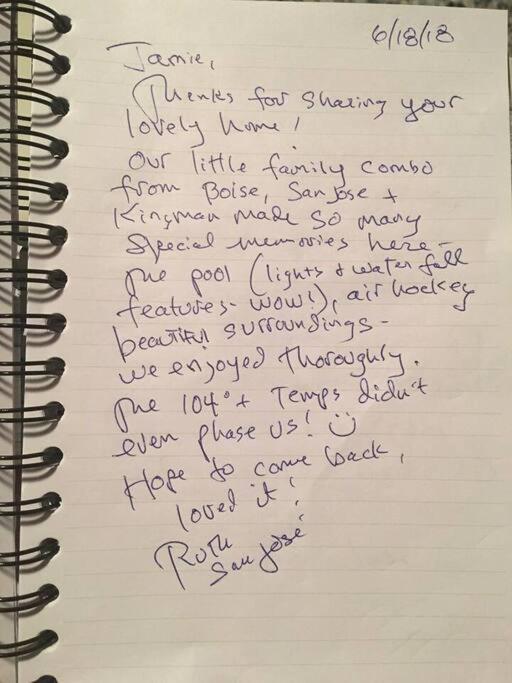 6/18/18
Jamie,
Thenks for sharing your
lovely home!
Our little family combo
from Boise, San Jose +
Kingman made so many
special memories here -
The pool (lights & water fall
features - wow!), air hockey
beautiful surroundings -
we enjoyed thoroughly.
The 104°+ Temps didn't
even phase us! ☺
Hope to come back,
loved it!
Ruth
San José